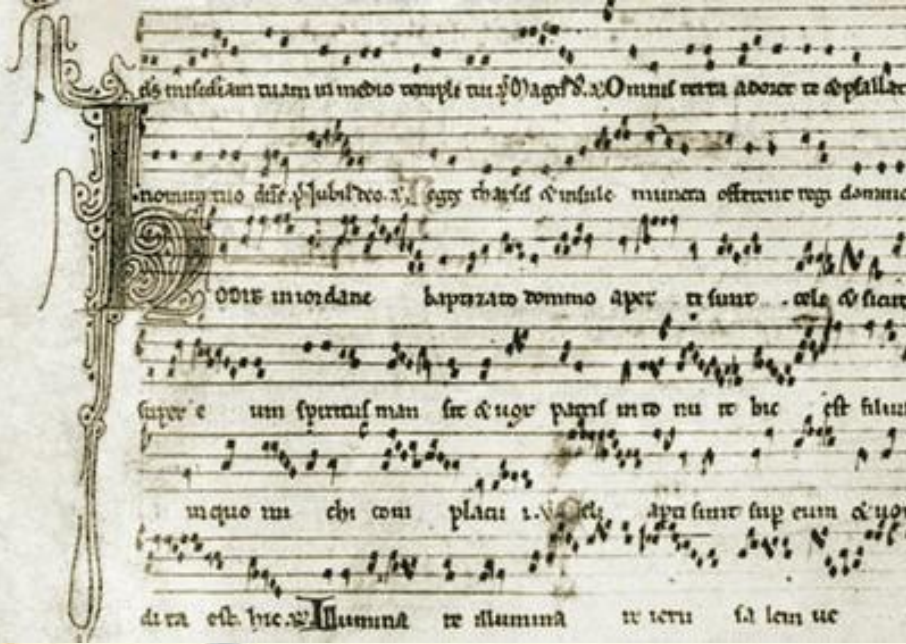 ds misediam tuam in medio templi tui Omnis terra adoret te & psallat
nomini tuo Jubil deo. Reges tharsis & insule munera offerent regi domino
hODIE in iordane baptizato domino aper ti sunt celi & sicut
super e um spiritus man sit & uox patris in to nu it hic est filius
in quo mi chi con placu i. celi aperti sunt sup eum & uox
di ta est. hic Illumina re illumina re ieru sa lem ue